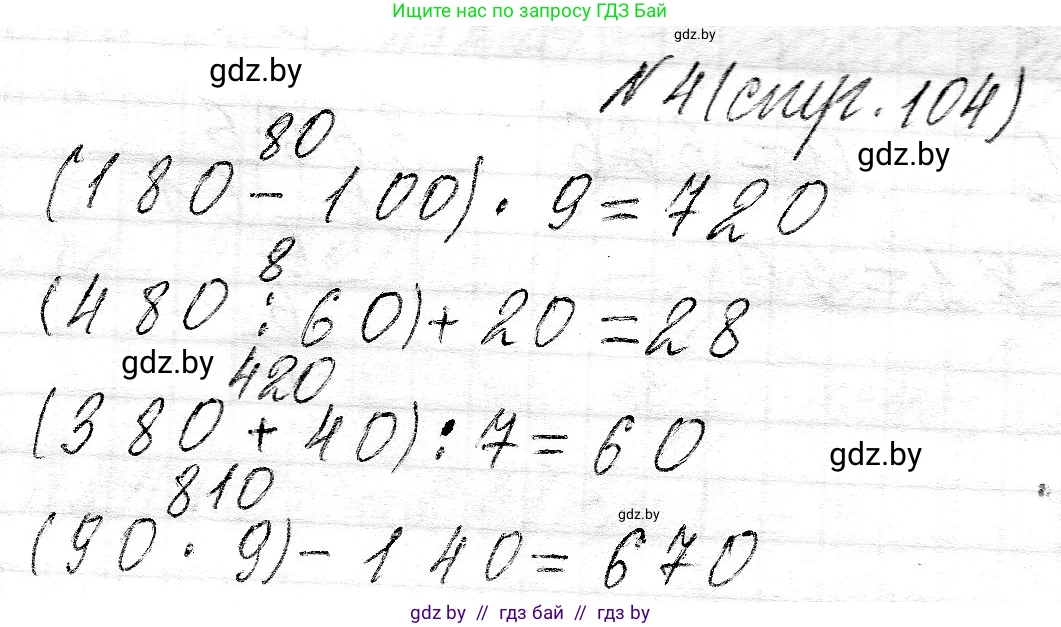 Ищите нас по запросу ГДЗ Бай
gdz.by
gdz.by
№ 4 (стр. 104)
gdz.by
80
(180 - 100) · 9 = 720
8
(480 : 60) + 20 = 28
gdz.by
420
(380 + 40) : 7 = 60
gdz.by
810
gdz.by
(90 · 9) - 140 = 670
gdz.by // гдз бай // гдз by